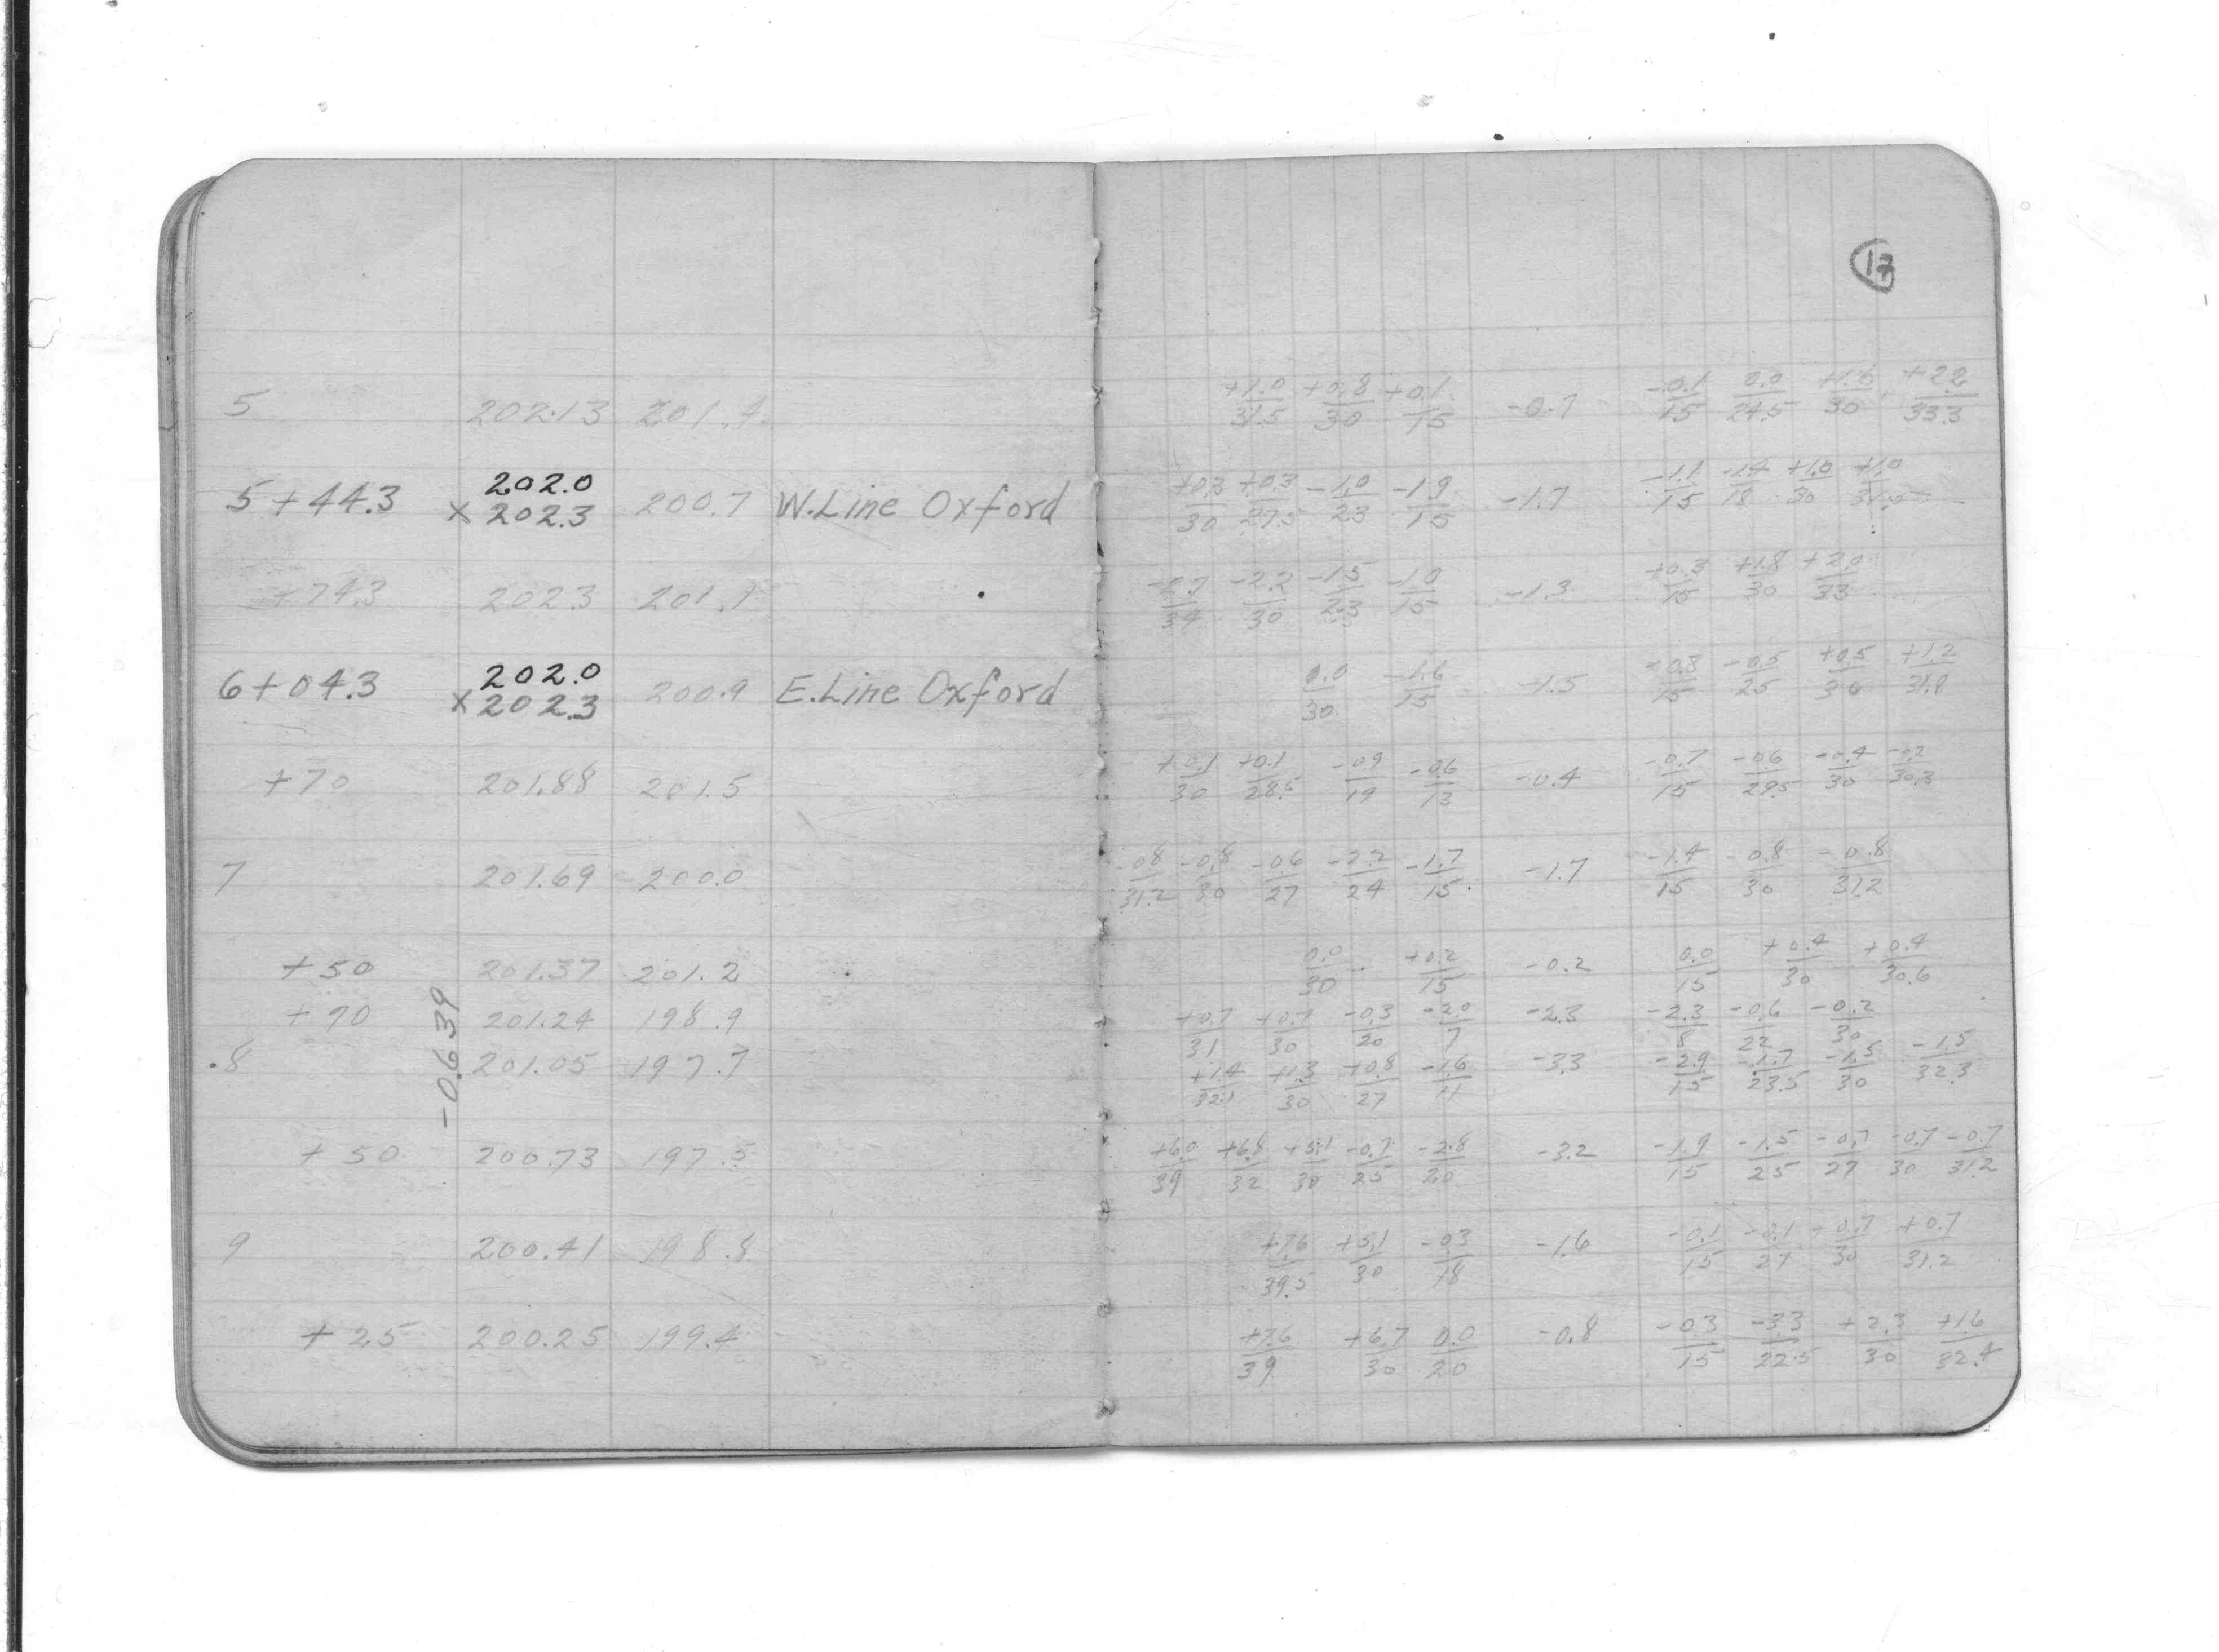 17
5 202.13 201.4 +1.0/31.5 +0.8/30 +0.1/15 -0.7 -0.1/15 0.0/24.5 +1.6/30 +2.2/33.3
202.0
5+44.3 x 202.3 200.7 W.Line Oxford +0.3/30 +0.3/27.5 -1.0/23 -1.9/15 -1.7 -1.1/15 -1.4/18 +1.0/30 +1.0/31.5
+74.3 202.3 201.1 -2.7/34 -2.2/30 -1.5/23 -1.0/15 -1.3 +0.3/15 +1.8/30 +2.0/33
202.0
6+04.3 x 202.3 200.9 E.Line Oxford 0.0/30 -1.6/15 -1.5 -0.3/15 -0.5/25 +0.5/30 +1.2/31.8
+70 201.88 201.5 +0.1/30 +0.1/28.5 -0.9/19 -0.6/13 -0.4 -0.7/15 -0.6/29.5 -0.4/30 -0.2/30.3
7 201.69 200.0 -0.8/31.2 -0.8/30 -0.6/27 -2.2/24 -1.7/15 -1.7 -1.4/15 -0.8/30 -0.8/31.2
+50 201.37 201.2 0.0/30 +0.2/15 -0.2 0.0/15 +0.4/30 +0.4/30.6
-0.639
+70 201.24 198.9 +0.7/31 +0.7/30 -0.3/20 -2.0/7 -2.3 -2.3/8 -0.6/22 -0.2/30
8 201.05 197.7 +1.4/32.1 +1.3/30 +0.8/27 -1.6/11 -3.3 -2.9/15 -1.7/23.5 -1.5/30 -1.5/32.3
+50 200.73 197.5 +6.0/39 +6.8/32 +5.1/30 -0.7/25 -2.8/20 -3.2 -1.9/15 -1.5/25 -0.7/27 -0.7/30 -0.7/31.2
9 200.41 198.8 +7.6/39.5 +5.1/30 -0.3/18 -1.6 -0.1/15 -0.1/27 +0.7/30 +0.7/31.2
+25 200.25 199.4 +7.6/39 +6.7/30 0.0/20 -0.8 -0.3/15 -3.3/22.5 +2.3/30 +1.6/32.4